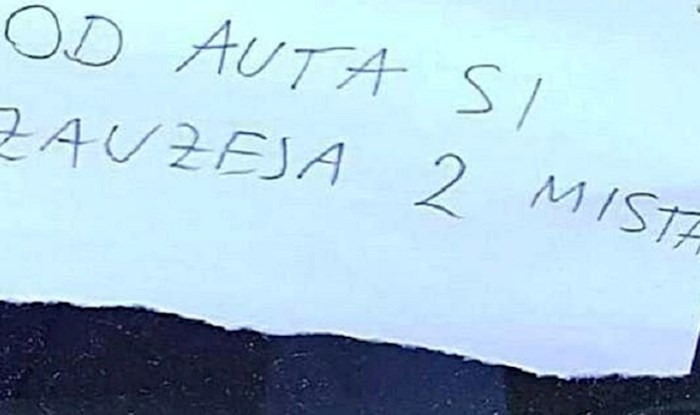 OD AUTA SI
ZAUZEJA 2 MISTA